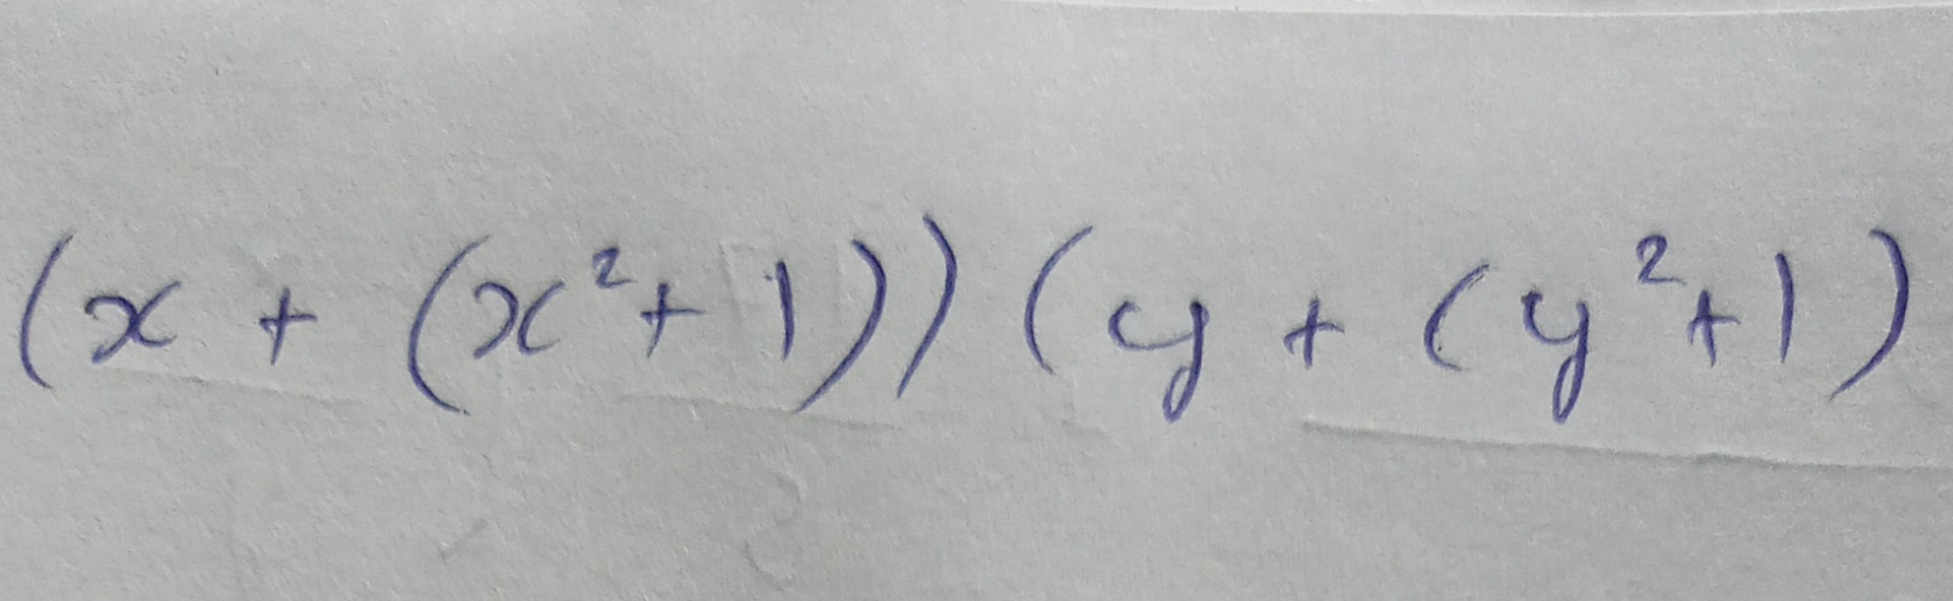 (x + (x²+ 1)) (y + (y²+1)